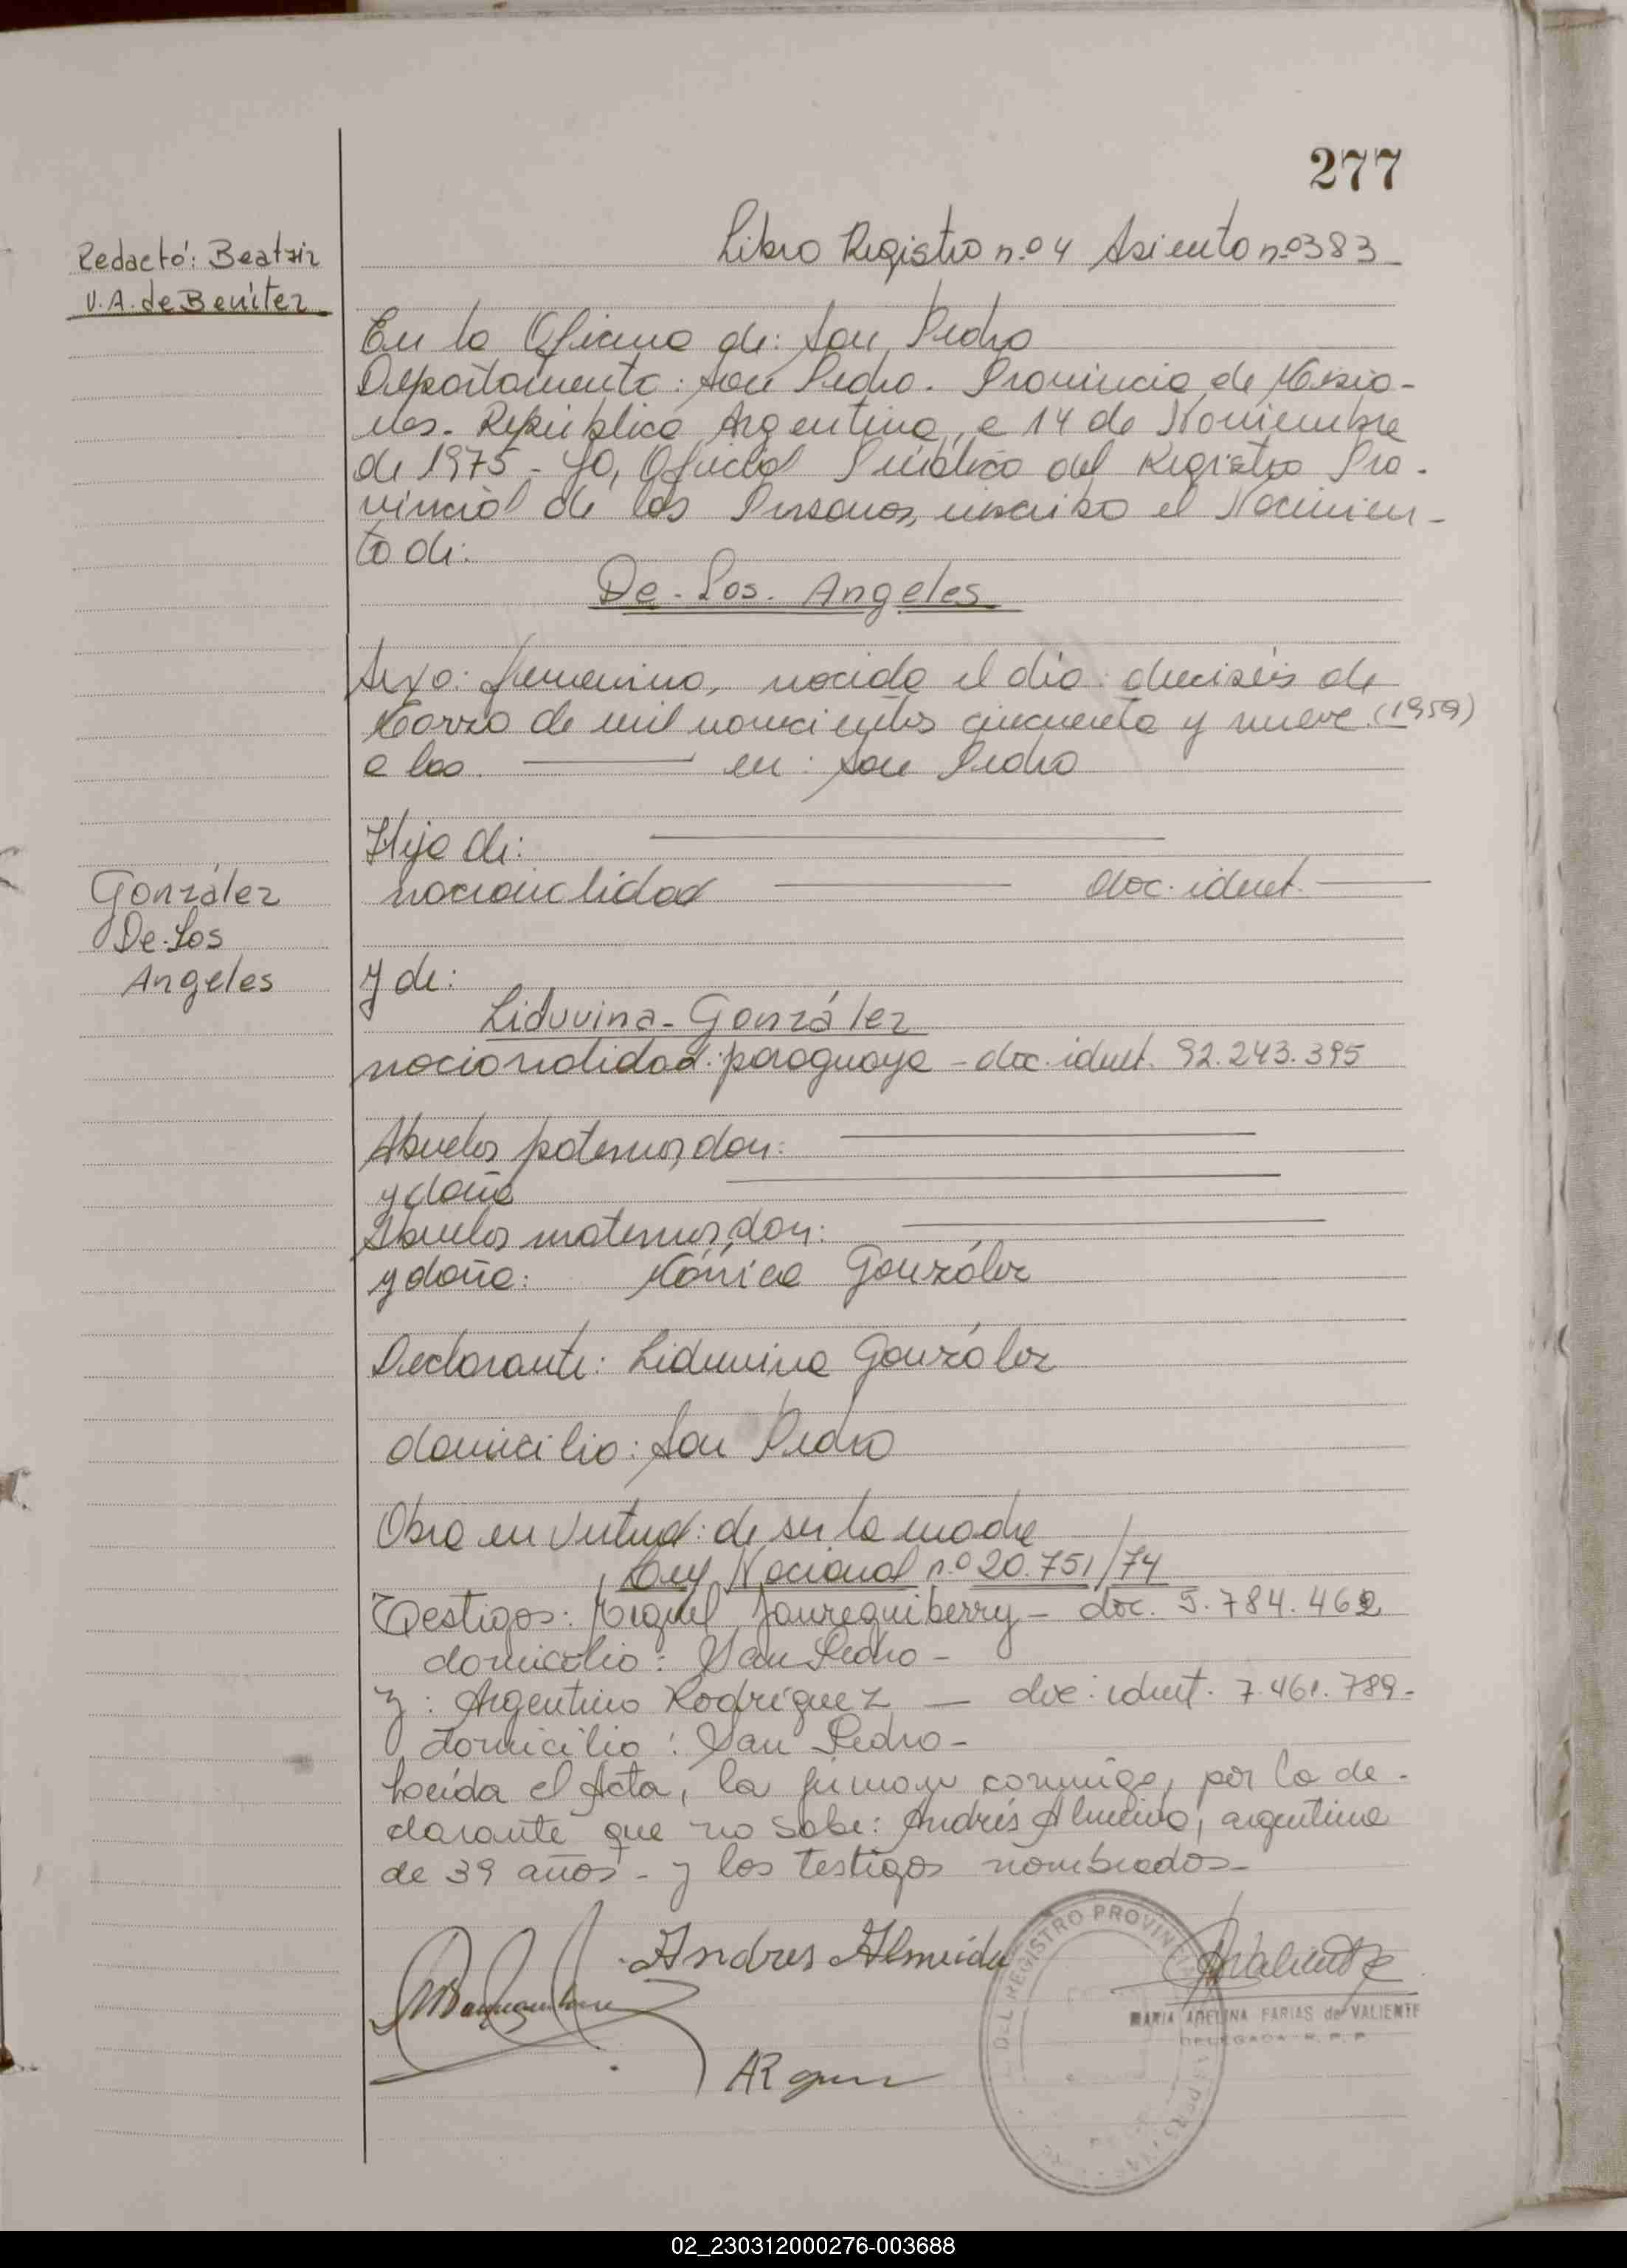 277
Libro Registro n.º 4 Asiento n.º 383
Redactó: Beatriz
V.A. de Benítez
En la Oficina de: San Pedro
Departamento: San Pedro. Provincia de Misio-
nes. República Argentina, a 14 de Noviembre
de 1975 - Yo, Oficial Público del Registro Pro-
vincial de las Personas, inscribo el Nacimien-
to de:
De-Los-Angeles
Sexo: femenino, nacida el día: dieciséis de
Marzo de mil novecientos cincuenta y nueve. (1959)
a las. ——— en: San Pedro
Hija de: ———
nacionalidad ——— doc. ident. ———
González
De-Los
Angeles
y de:
Liduvina-González
nacionalidad: paraguaya - doc. ident. 92.243.395
Abuelos paternos, don: ———
y doña ———
Abuelos maternos, don: ———
y doña: Mónica González
Declarante: Liduvina González
domicilio: San Pedro
Obra en virtud: de ser la madre
Ley Nacional n.º 20.751/74
Testigos: Miguel Jaureguiberry - doc. 5.784.462
domicilio: San Pedro -
y: Argentino Rodríguez — doc. ident. 7.461.789-
domicilio: San Pedro -
Leída el Acta, la firman conmigo, por la de-
clarante que no sabe: Andrés Almeida, argentino
de 39 años - y los testigos nombrados-
Andres Almeida
DEL REGISTRO PROVIN
MARIA ADELINA FARIAS de VALIENTE
DELEGADA R. P. P.
02_230312000276-003688